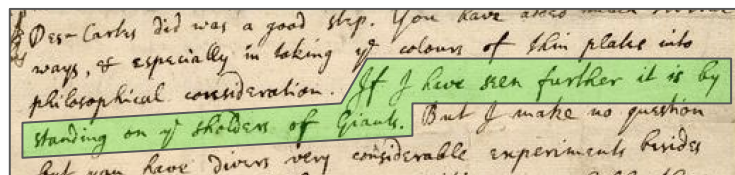 Des-Cartes did was a good step. You have added much several
ways, & especially in taking yᵉ colours of thin plates into
philosophical consideration. If I have seen further it is by
standing on yᵉ sholders of Giants. But I make no question
but you have divers very considerable experiments besides